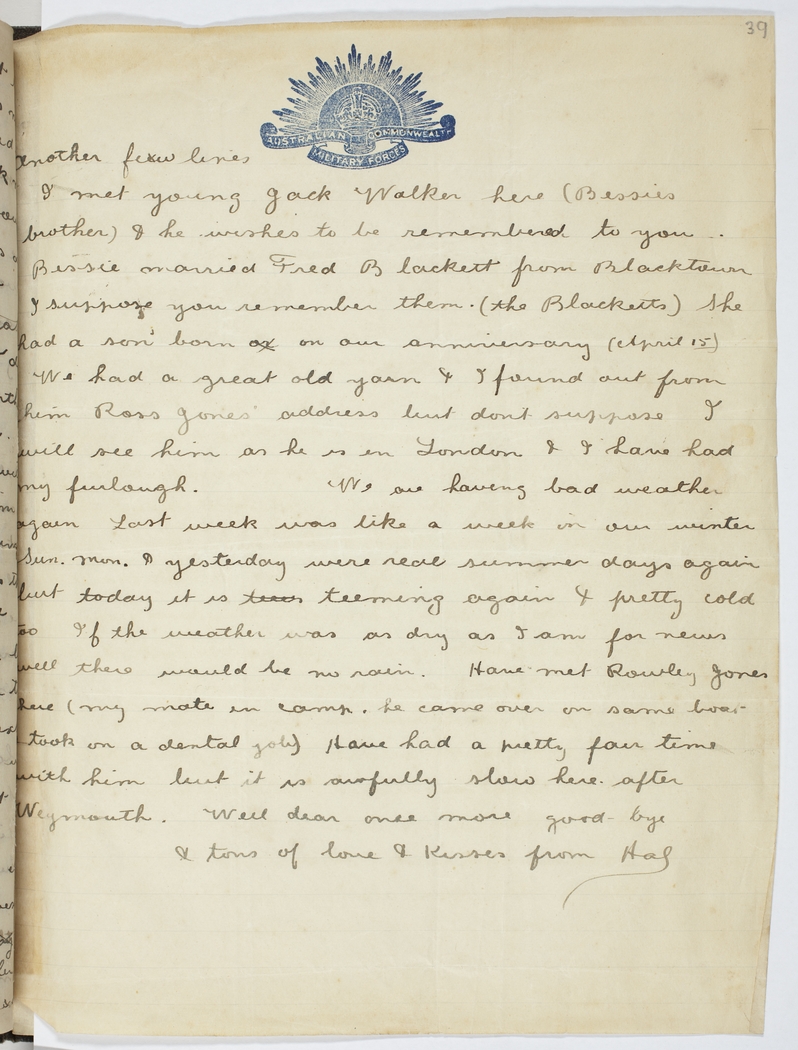 39
AUSTRALIAN COMMONWEALTH
MILITARY FORCES
another few lines
I met young Jack Walker here (Bessies
brother) & he wishes to be remembered to you.
Bessie married Fred Blackett from Blacktown
I suppose you remember them. (the Blacketts) She
had a son born on our anniversary (April 15)
We had a great old yarn & I found out from
him Ross Jones' address but dont suppose I
will see him as he is in London & I have had
my furlough. We are having bad weather
again Last week was like a week in our winter
Sun. Mon. & yesterday were real summer days again
but today it is teeming again & pretty cold
too If the weather was as dry as I am for news
well there would be no rain. Have met Rowley Jones
here (my mate in camp. he came over on same boat
took on a dental job) Have had a pretty fair time
with him but it is awfully slow here after
Weymouth. Well dear once more good-bye
& tons of love & kisses from Hal